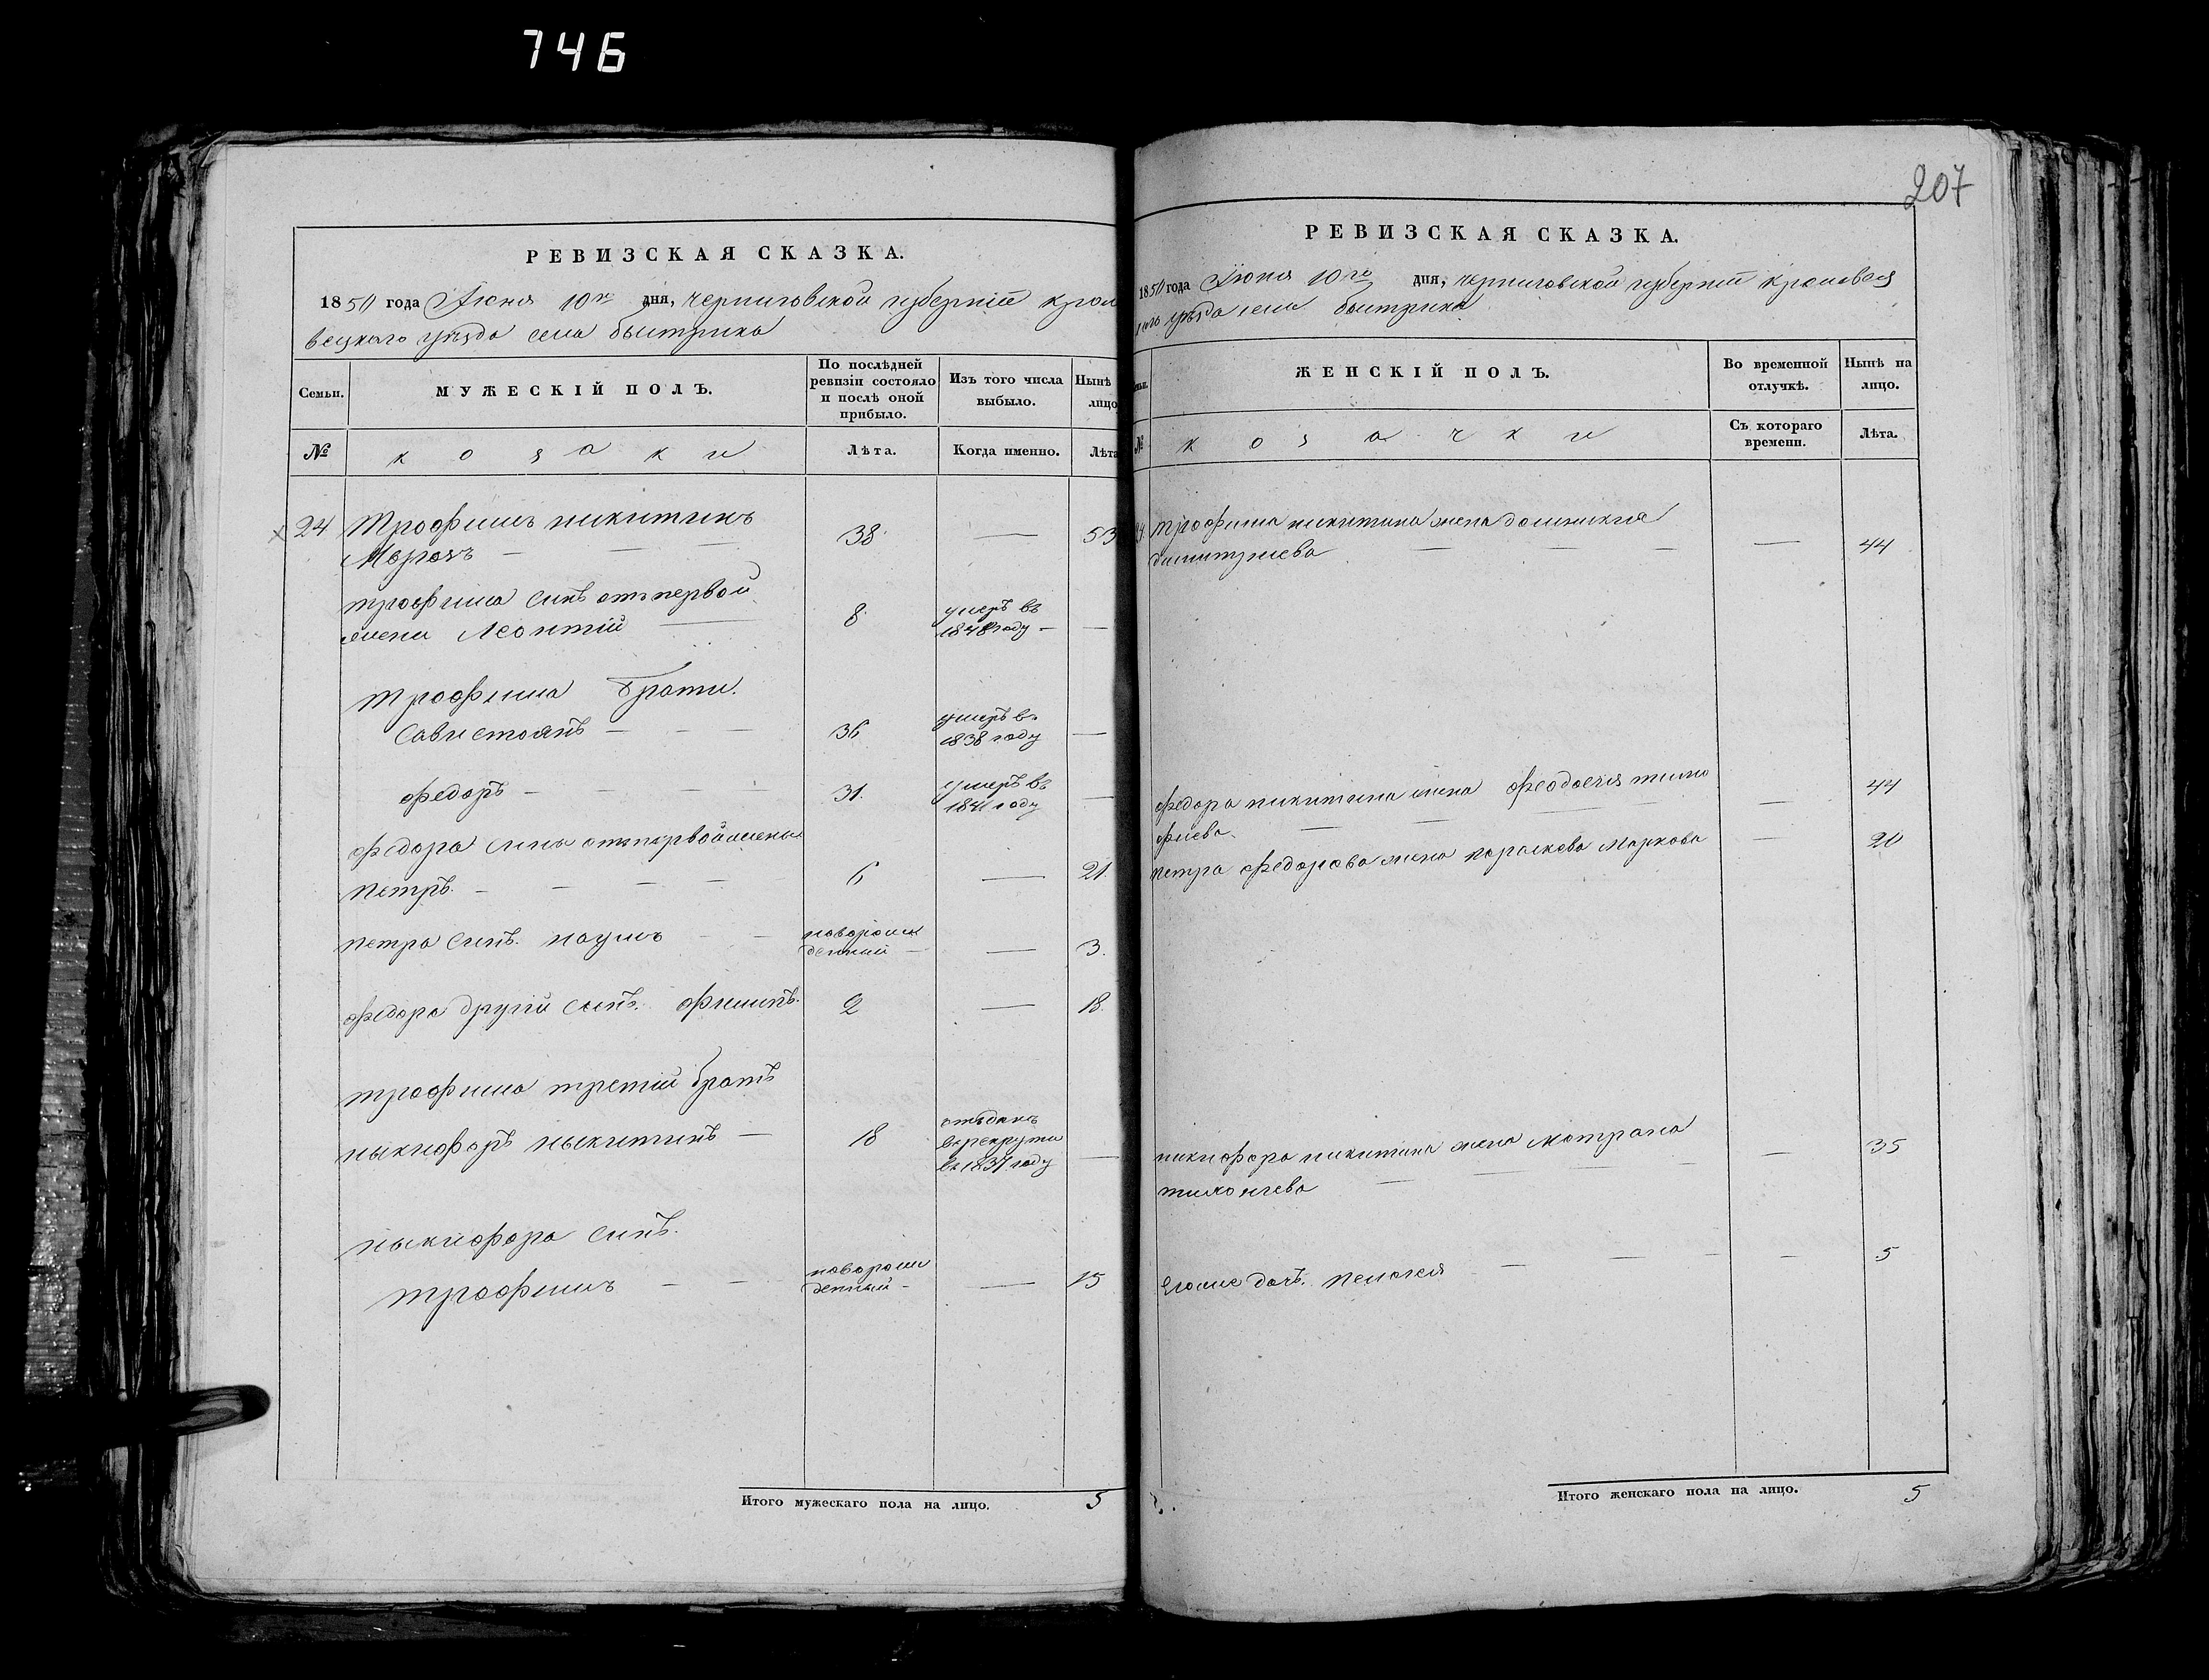 746
РЕВИЗСКАЯ СКАЗКА.
1850 года Июня 10го дня, черниговской губернiи крол
вецкаго уезда села быстрика
Семьи.
МУЖЕСКІЙ ПОЛЪ.
По послѣдней
ревизіи состояло
и послѣ оной
прибыло.
Изъ того числа
выбыло.
Нынѣ
лицо
№
козаки
Лѣта.
Когда именно.
Лѣта
24 Трофимъ никитинъ
38. — 53
трофима синъ отъ первой
жени Леонтій — 8. умеръ въ
1848 году — —
трофима брати.
Савистоянъ — — — 36 умеръ въ
1838 году —
федоръ — — — — 31. умеръ въ
1841 году —
федора синъ отъ первой жены
петръ. — — — — 6 — 21.
петра синъ. наумъ — — новорожд
денный — — 3.
федора другій синъ. филипъ. 2 — 18.
трофима третій братъ
ныкифоръ ныкитинъ — 18 отъданъ
въ рекруты
въ 1837 году —
ныкифора синъ.
трофимъ — — новорож
денный — — 15
Итого мужескаго пола на лицо. 5
207
РЕВИЗСКАЯ СКАЗКА.
1850 года Июня 10го дня, черниговской губерніи кролевец
каго уезда села быстрика
ЖЕНСКІЙ ПОЛЪ.
Во временной
отлучкѣ.
Нынѣ на
лицо.
№
козачки
Съ котораго
времени.
Лѣта.
24. трофима никитина жена домникия
димитриева — — — — 44
федора никитина жена феодосия тимо
фиева — — — — 44
петра федорова жена параскева Маркова — 20
никифора никитина жена мотрона
тихониева — — — — 35
Егоже дочъ. пелагея — — — — 5
Итого женскаго пола на лицо. 5